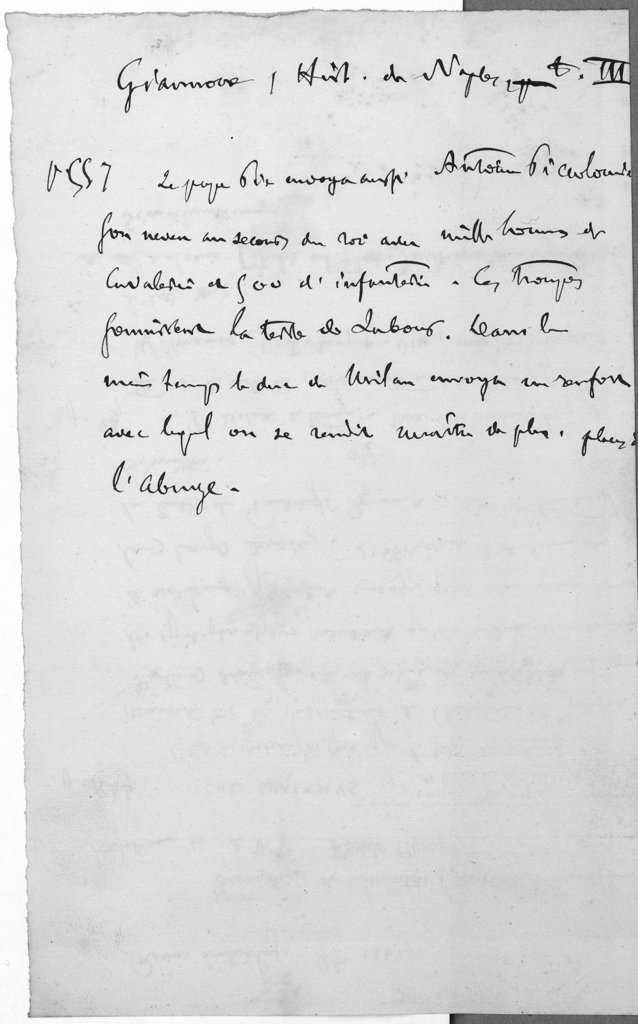 Giannone, Hist. de Naples, t. III
p 557 Le pape Pie envoya aussi Antoine Piccolomini
son neveu au secours du roi avec mille hommes de
cavalerie et 500 d'infanterie. Ces troupes
soumirent la terre de Labour. Dans le
même temps le duc de Milan envoya un renfort
avec lequel on se rendit maître de plus. places de
l'Abruzze.